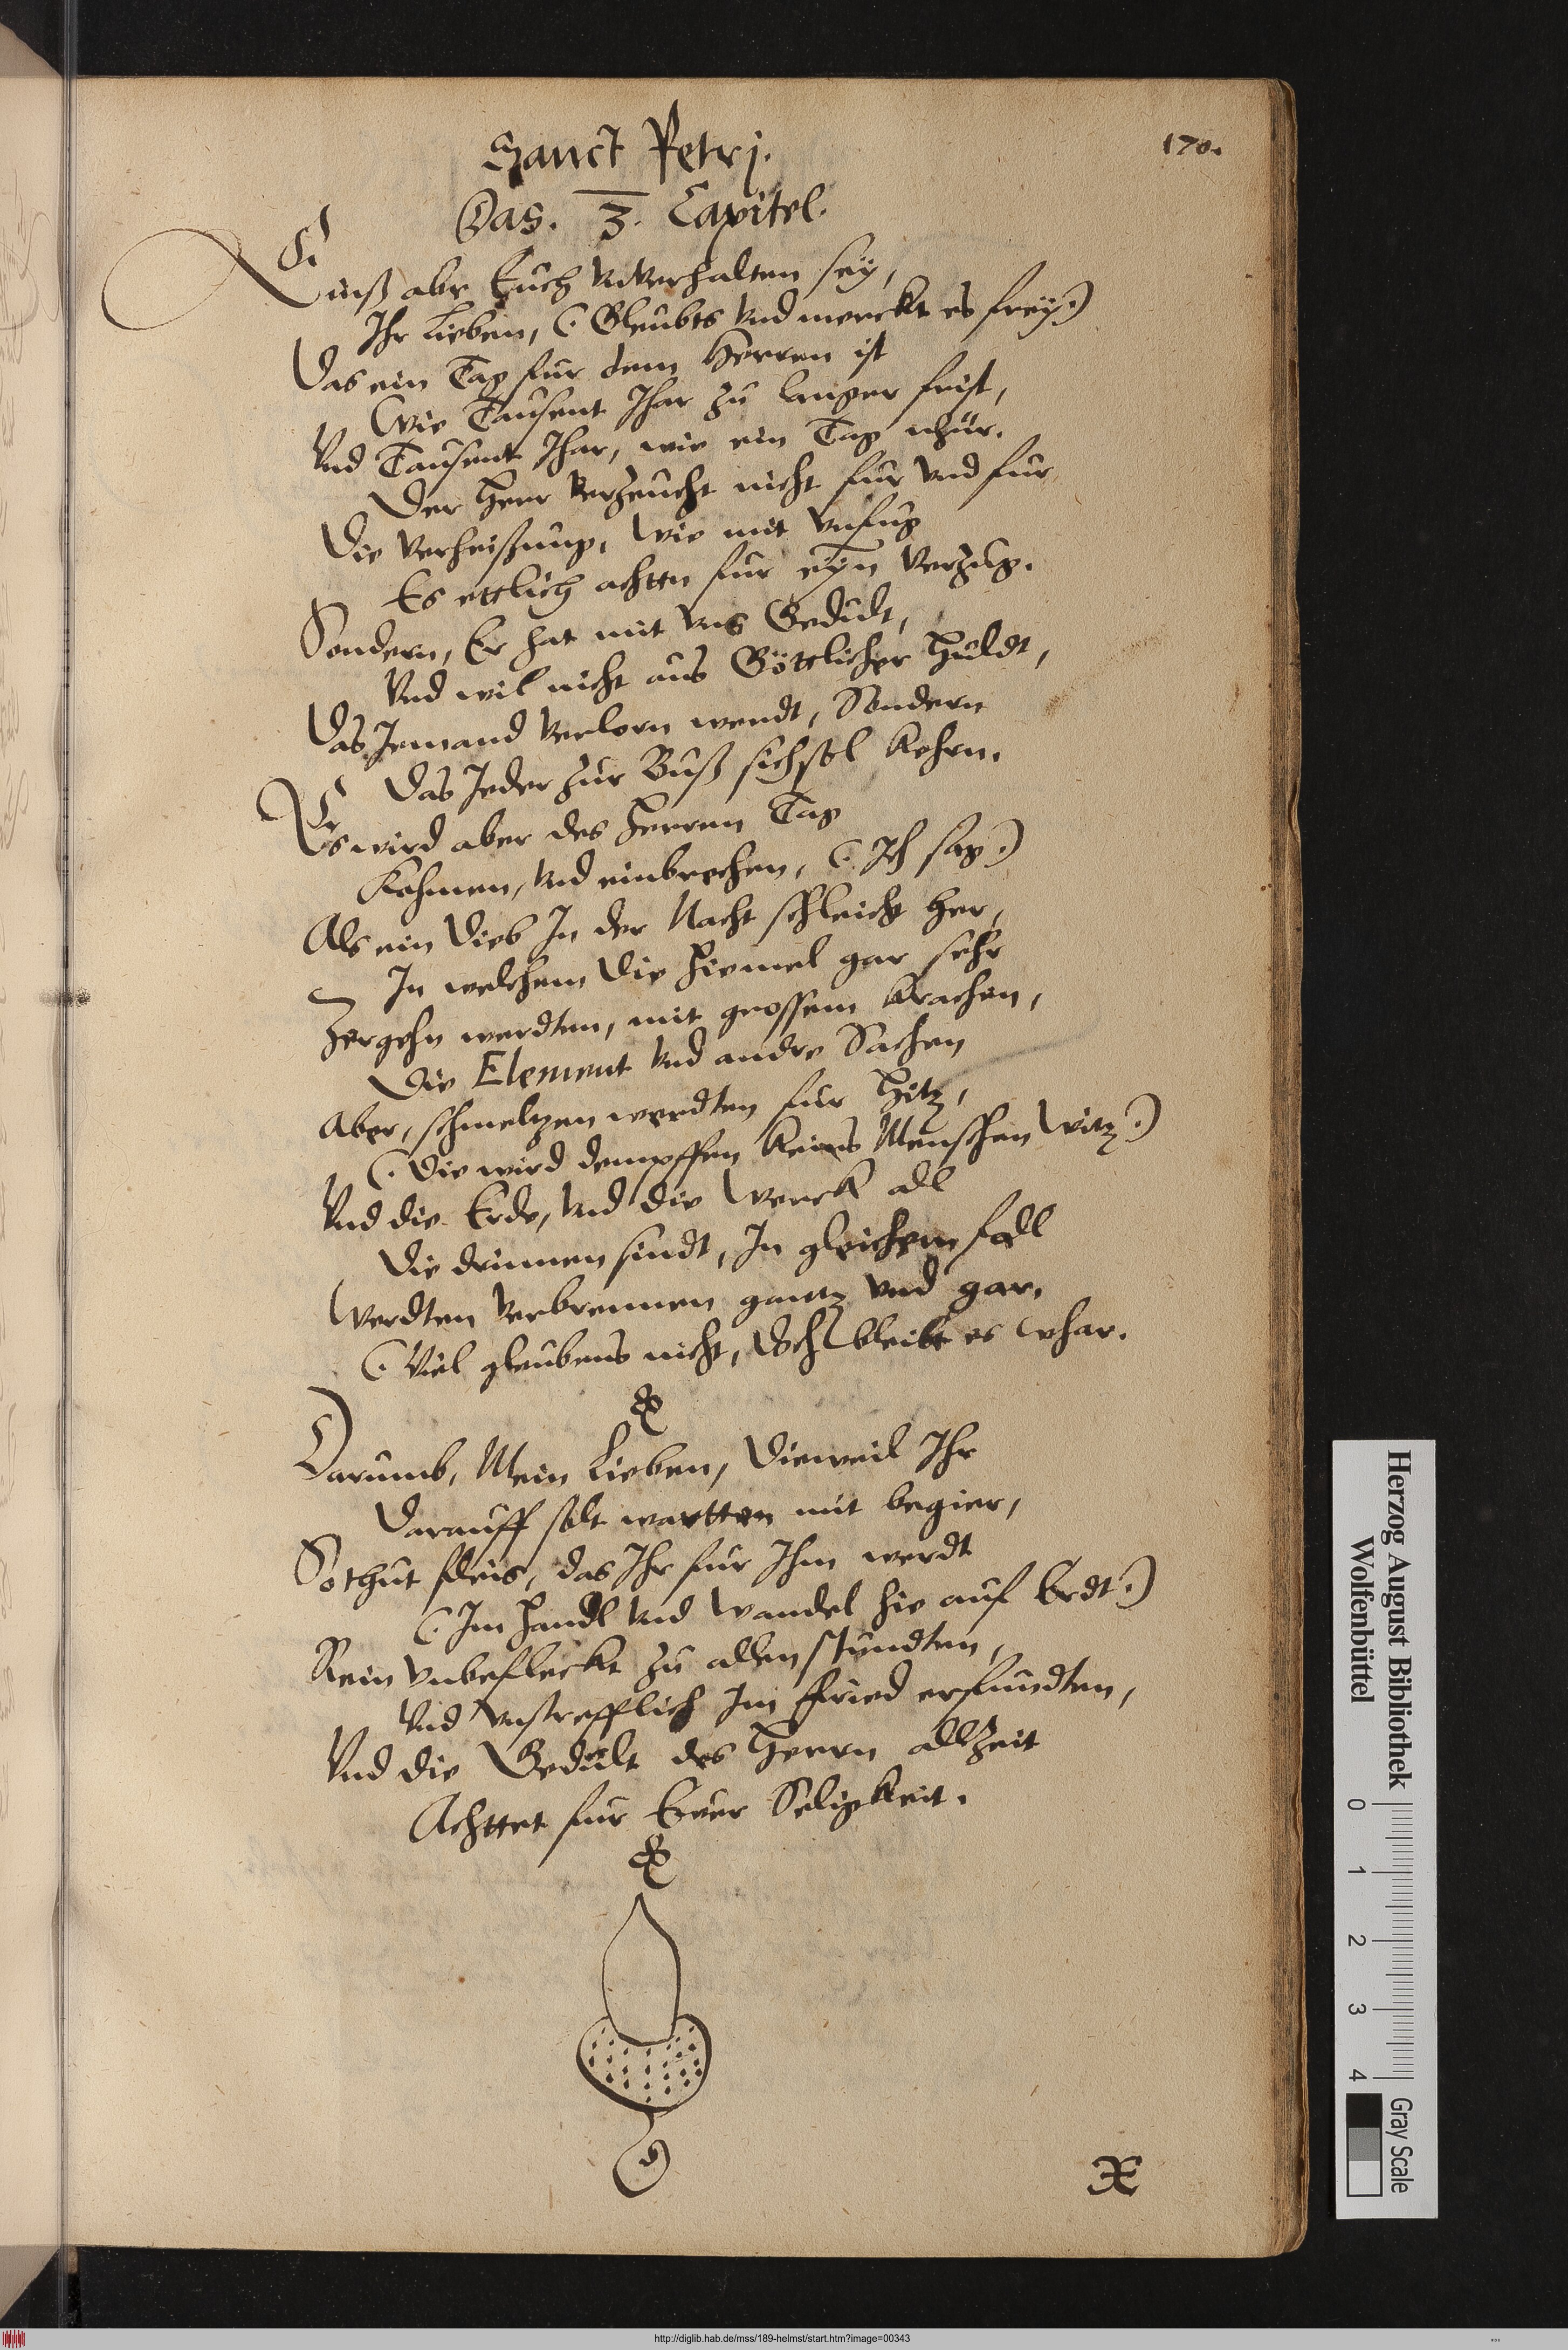 Sanct Petrj.
170.
Das. 3. Capitel.
Einß aber Euch unverhalten seÿ,
Ihr Lieben, (: Gleubts vnd merckt es freÿ :)
Das ein Tag fur dem Herren ist
Wie Tausent Jhar zu langer frist,
Vnd Tausent Jhar, wie ein Tag nhur.
Der Herr verzeucht nicht fur vnd fur
Die Verheißung, wie mit vnfug
Es ettlich achttn fur eÿn verzug.
Sondern, Er hat mit vns Gedult,
Vnd wil nicht aus Göttlicher Huldt,
Das Jemand verlorn werdt, Sondern
Das Jeder zur Buß sich sol kehrn.
Es wird aber des Herren Tag
Kohmen, vnd einbrechen, (: Ich sag :)
Als ein Dieb In der Nacht schleicht her,
In welchem die Hiemel gar sehr
Zergehn werdten, mit grossem krachen,
Die Element vnd andre Sachen
Aber, schmeltzen werdten fur Hitz,
(: Die wird dempffen keins Menschen Witz :)
Vnd die Erde, vnd die Werck all
Die drinnen sindt, In gleichem fall
Werdten verbrennen gantz vnd gar.
(: Viel gleubens nicht, doch bleibt es Whar.
Darumb, Mein Lieben, Dieweil Ihr
Darauff solt wartten mit begier,
So thut fleis, das Ihr fur Ihm werdt
(: Im Handl vnd Wandel hie auf Erdt :)
Rein vnbefleckt zu allen stundten,
Vnd vnstrefflich Im Fried erfundten,
Vnd die Gedult des Herrn allzeit
Achttet fur Ewer Seligkeit.
X
Herzog August Bibliothek
Wolfenbüttel
0 1 2 3 4
Gray Scale
http://diglib.hab.de/mss/189-helmst/start.htm?image=00343